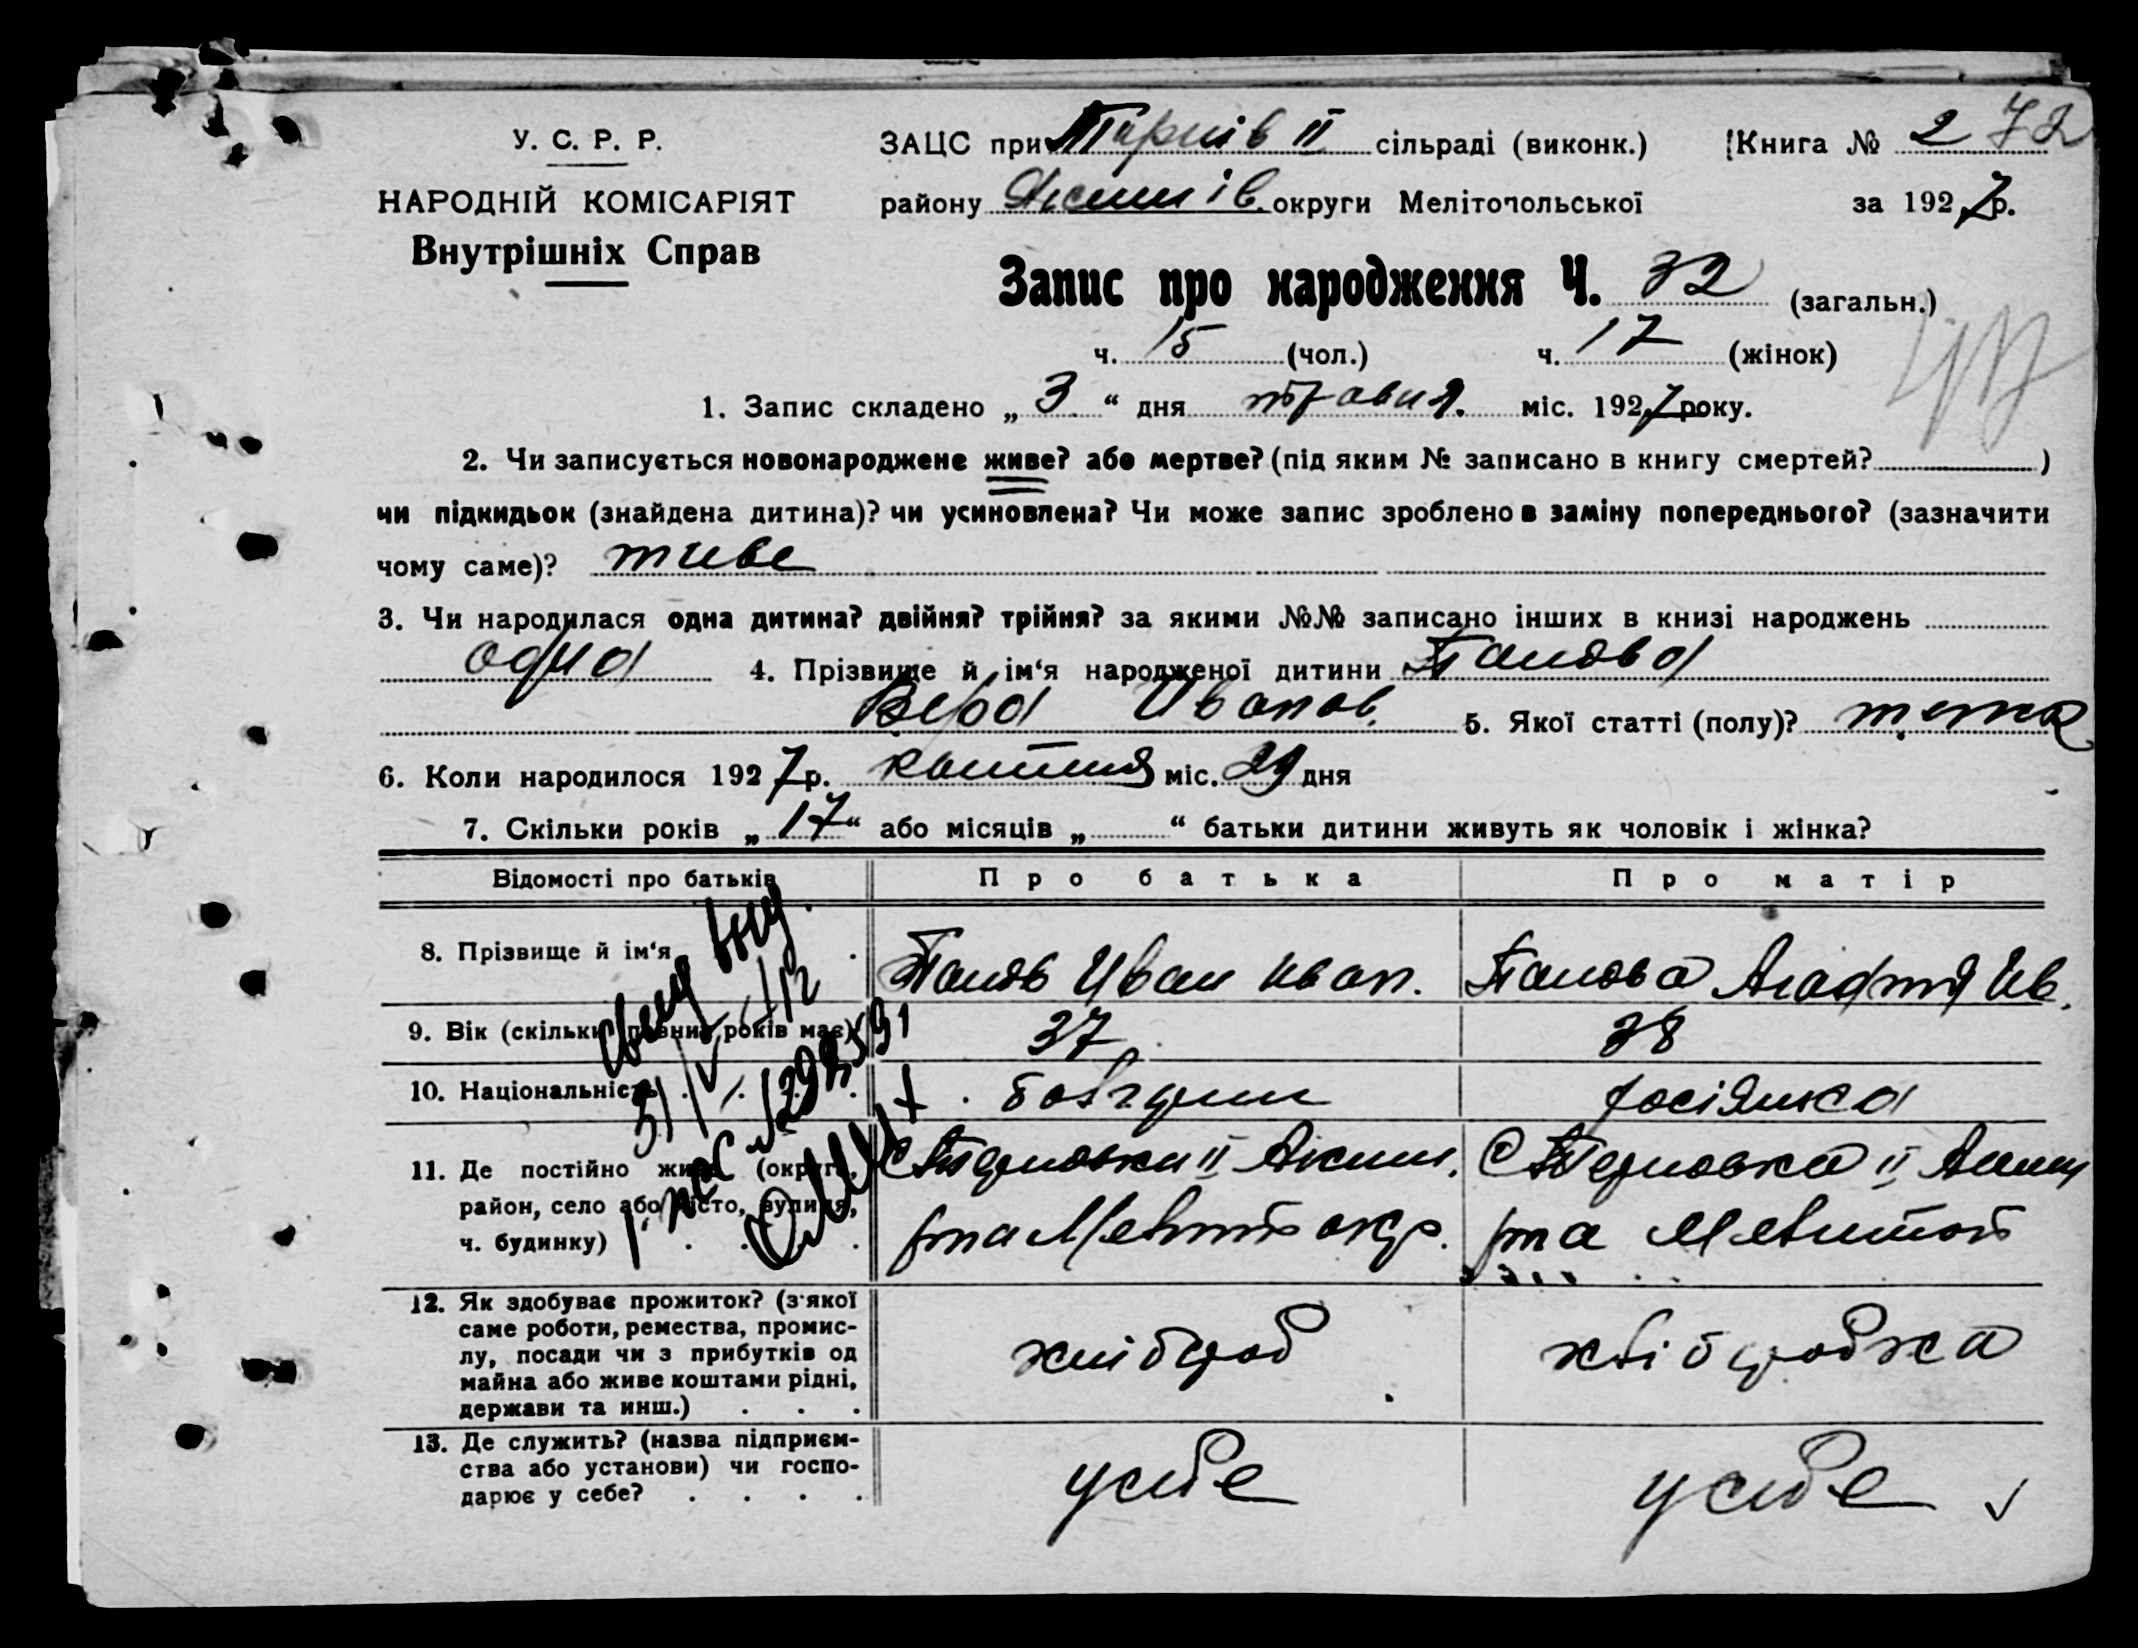 У. С. Р. Р.
НАРОДНІЙ КОМІСАРІЯТ
Внутрішніх Справ
ЗАЦС при II сільраді (виконк.) Книга № 2 72
району Якимів. округи Мелітопольської за 1927 р.
Запис про народження Ч. 32 (загальн.)
ч. 15 (чол.) ч. 17 (жінок)
1. Запис складено „ 3 “ дня травня міс. 1927 року.
2. Чи записується новонароджене живе? або мертве? (під яким № записано в книгу смертей? )
чи підкидьок (знайдена дитина)? чи усиновлена? Чи може запис зроблено в заміну попереднього? (зазначити
чому саме)? живе
3. Чи народилася одна дитина? двійня? трійня? за якими №№ записано інших в книзі народжень
одна 4. Прізвище й ім‘я народженої дитини Панова
Вера Иванов. 5. Якої статті (полу)?
6. Коли народилося 1927 р. квітня міс. 29 дня
7. Скільки років „ 17 “ або місяців „ “ батьки дитини живуть як чоловік і жінка?
Відомості про батьків Про батька Про матір
8. Прізвище й ім‘я Панов Иван Иван. Панова Агафия Ив.
9. Вік (скільки повних років має) 37 38
10. Національність болгарин росіянка
11. Де постійно живе (округа,
район, село або місто, вулиця,
ч. будинку)
С. II Аким. С. II Аким
р-на Меліт окр. р-на Мелитоп
12. Як здобуває прожиток? (з якої
саме роботи, ремества, промис-
лу, посади чи з прибутків од
майна або живе коштами рідні,
держави та инш.)
хлібороб хліборобка
13. Де служить? (назва підприєм-
ства або установи) чи госпо-
дарює у себе?
у себе у себе